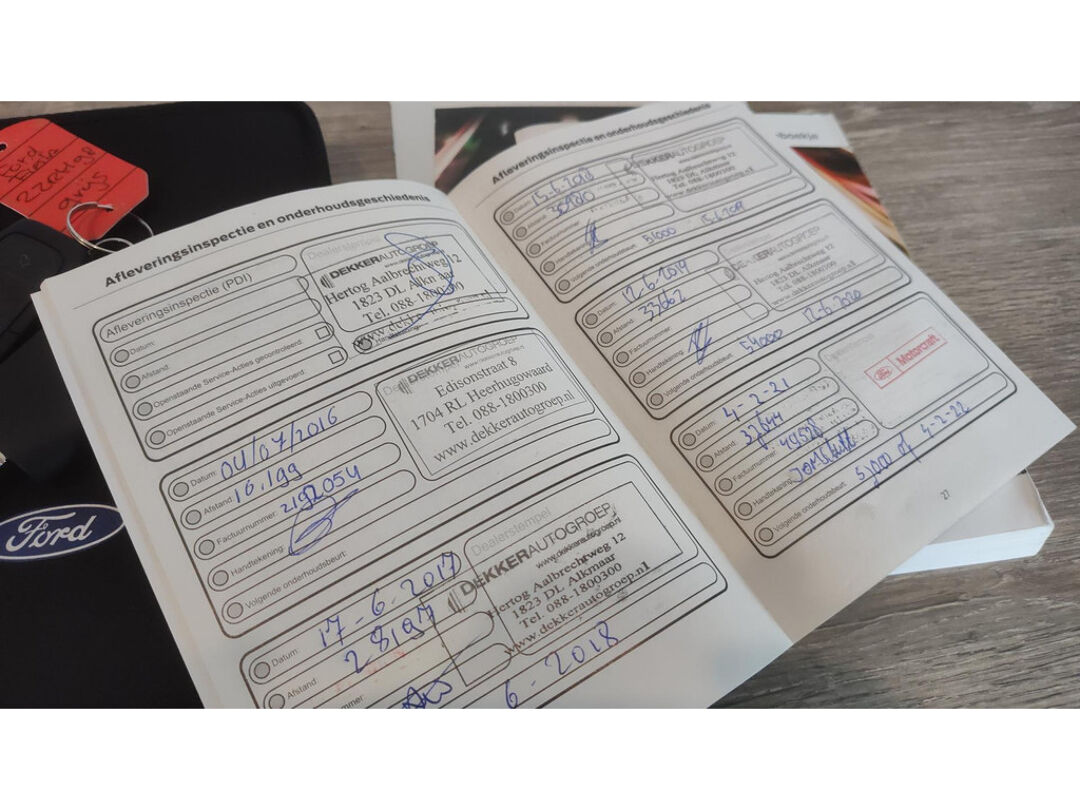 Ford
grijs
Ford
Afleveringsinspectie en onderhoudsgeschiedenis
Afleveringsinspectie (PDI)
Datum:
Afstand:
Openstaande Service-Acties gecontroleerd:
Openstaande Service-Acties uitgevoerd:
Dealerstempel
DEKKERAUTOGROEP
Hertog Aalbrechtweg 12
1823 DL Alkmaar
Tel. 088-1800300
www.dekker
Datum: 04/07/2016
Afstand: 16.199
Factuurnummer: 2192054
Handtekening:
Volgende onderhoudsbeurt:
DEKKERAUTOGROEP
www.dekkerautogroep.nl
Edisonstraat 8
1704 RL Heerhugowaard
Tel. 088-1800300
www.dekkerautogroep.nl
Datum: 17-6-2017
Afstand: 28197
mmer:
6-2018
Dealerstempel
DEKKERAUTOGROEP
www.dekkerautogroep.nl
Hertog Aalbrechtweg 12
1823 DL Alkmaar
Tel. 088-1800300
www.dekkerautogroep.nl
Afleveringsinspectie en onderhoudsgeschiedenis
Datum: 15-6-2018
Afstand:
Factuurnummer:
Handtekening:
Volgende onderhoudsbeurt: 51000
DEKKERAUTOGROEP
Hertog Aalbrechtweg 12
1823 DL Alkmaar
Tel. 088-1800300
www.dekkerautogroep.nl
Datum: 12-6-2019
Afstand: 33662
Factuurnummer:
Handtekening:
Volgende onderhoudsbeurt: 54000 12-6-2020
DEKKERAUTOGROEP
Hertog Aalbrechtweg 12
1823 DL Alkmaar
Tel. 088-1800300
www.dekkerautogroep.nl
Datum: 4-2-21
Afstand: 37644
Factuurnummer: 49528
Handtekening:
Volgende onderhoudsbeurt: 51000 of 4-2-22
Ford Motorcraft
27
boekje